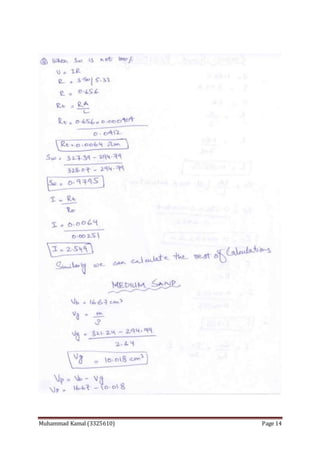 When Sw is not 100%
V = IR
R = 3.50/5.33
R = 0.656
Rt = RA
L
Rt = 0.656 x 0.000909
0.0912
Rt = 0.0064 Ωm
Sw = 327.39 - 294.79
- 294.79
Sw = 0.9795
I = Rt
Ro
I = 0.0064
0.00251
I = 2.549
Similarly we can calculate the rest of Calculations
MEDIUM SAND
Vb = 16.67 cm³
Vg = m
ρ
Vg = 321.24 - 294.79
2.64
Vg = 10.018 cm³
Vp = Vb - Vg
Vp = 16.67 - 10.018
Muhammad Kamal (3325610) Page 14